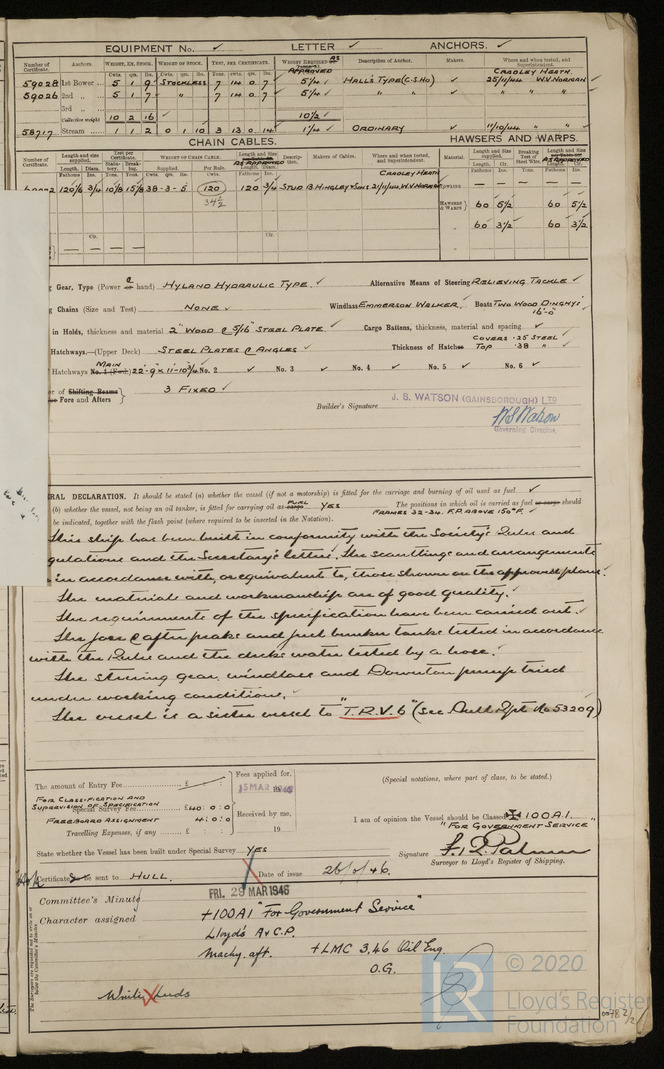 EQUIPMENT No. ✓ LETTER ✓ ANCHORS. ✓
Number of Certificate. Anchors. WEIGHT, EX. STOCK. WEIGHT OF STOCK. TEST, PER CERTIFICATE. WEIGHT REQUIRED AS APPROVED Description of Anchor. Makers. Where and when tested, and Superintendent.
Cwts. qrs. lbs. Cwts. qrs. lbs. Tons. cwts. qrs. lbs. Cwts. CRADLEY HEATH.
59028 1st Bower 5 1 9 STOCKLESS 7 14 0 7 5¼ HALL'S TYPE (C.SHO) 25/11/44 W.V. NORMAN
59026 2nd " 5 1 7 " 7 14 0 7 5¼ " " " " "
3rd "
Collective weight 10 2 16 10½
58717 Stream 1 1 2 0 1 10 3 13 0 14 1¼ ORDINARY 11/10/44 " "
CHAIN CABLES. HAWSERS AND WARPS.
Number of Certificate. Length and size supplied. Test per Certificate. WEIGHT OF CHAIN CABLE. Length and Size AS APPROVED Description. Makers of Cables. Where and when tested, and Superintendent. Material. Length and Size supplied. Breaking Test of Steel Wire. Length and Size AS APPROVED
Supplied. Per Rule. CRADLEY HEATH
120/8 3/4 10/8 15/8 38-3-5 120 120 3/4 STUD B. HINGLEY & SONS 2/11/44 W.V. NORMAN
34½
HAWSERS & WARPS 60 5½ 60 5½
" 60 3½ 60 3½
Gear, Type (Power @ hand) HYLAND HYDRAULIC TYPE. ✓ Alternative Means of Steering RELIEVING TACKLE ✓
Chains (Size and Test) NONE ✓ Windlass EMMERSON WALKER. ✓ Boats TWO WOOD DINGHYS 16'-0"
in Holds, thickness and material 2" WOOD @ 5/16" STEEL PLATE ✓ Cargo Battens, thickness, material and spacing ✓
Hatchways.—(Upper Deck) STEEL PLATES @ ANGLES ✓ Thickness of Hatches COVERS .25 STEEL TOP .38 " ✓
Hatchways MAIN No. 1 (Fwd.) 22'-9" x 11'-10¾" No. 2 ✓ No. 3 ✓ No. 4 ✓ No. 5 ✓ No. 6 ✓
of Shifting Beams Fore and Afters 3 FIXED ✓
Builder's Signature J. S. WATSON (GAINSBOROUGH) LTD
Governing Director.
RAL DECLARATION. It should be stated (a) whether the vessel (if not a motorship) is fitted for the carriage and burning of oil used as fuel ✓
(b) whether the vessel, not being an oil tanker, is fitted for carrying oil as cargo FUEL YES The positions in which oil is carried as fuel or cargo should
FRAMES 32-34. F.P. ABOVE 150°F. ✓
be indicated, together with the flash point (where required to be inserted in the Notation).
This ship has been built in conformity with the Society's Rules and
gulations and the Secretary's letters. The scantlings and arrangements
in accordance with, or equivalent to, those shown on the approved plans.
The materials and workmanship are of good quality. ✓
The requirements of the specification have been carried out. ✓
The fore @ after peaks and fuel bunker tanks tested in accordance
with the Rules and the decks water tested by a hose. ✓
The steering gear, windlass and Downton pump tried
under working conditions. ✓
The vessel is a sister vessel to "T.R.V. 6" (see Hull Rpt. No 53209)
The amount of Entry Fee £ : : Fees applied for.
15 MAR 1946
FOR CLASSIFICATION AND SUPERVISION OF SPECIFICATION
Special Survey Fee £40 : 0 : 0 Received by me.
FREEBOARD ASSIGNMENT 4 : 0 : 0
Travelling Expenses, if any £ : : 19
(Special notations, where part of class, to be stated.)
I am of opinion the Vessel should be Classed ✠ 100A1.
"FOR GOVERNMENT SERVICE"
State whether the Vessel has been built under Special Survey YES
Signature
Surveyor to Lloyd's Register of Shipping.
Certificate to be sent to HULL. Date of issue
Committee's Minute FRI. 29 MAR 1946
Character assigned +100A1 "For Government Service"
Lloyd's A & C.P.
Machy. aft. +LMC 3,46 Oil Eng.
O.G.
© 2020
Lloyd's Register
Foundation